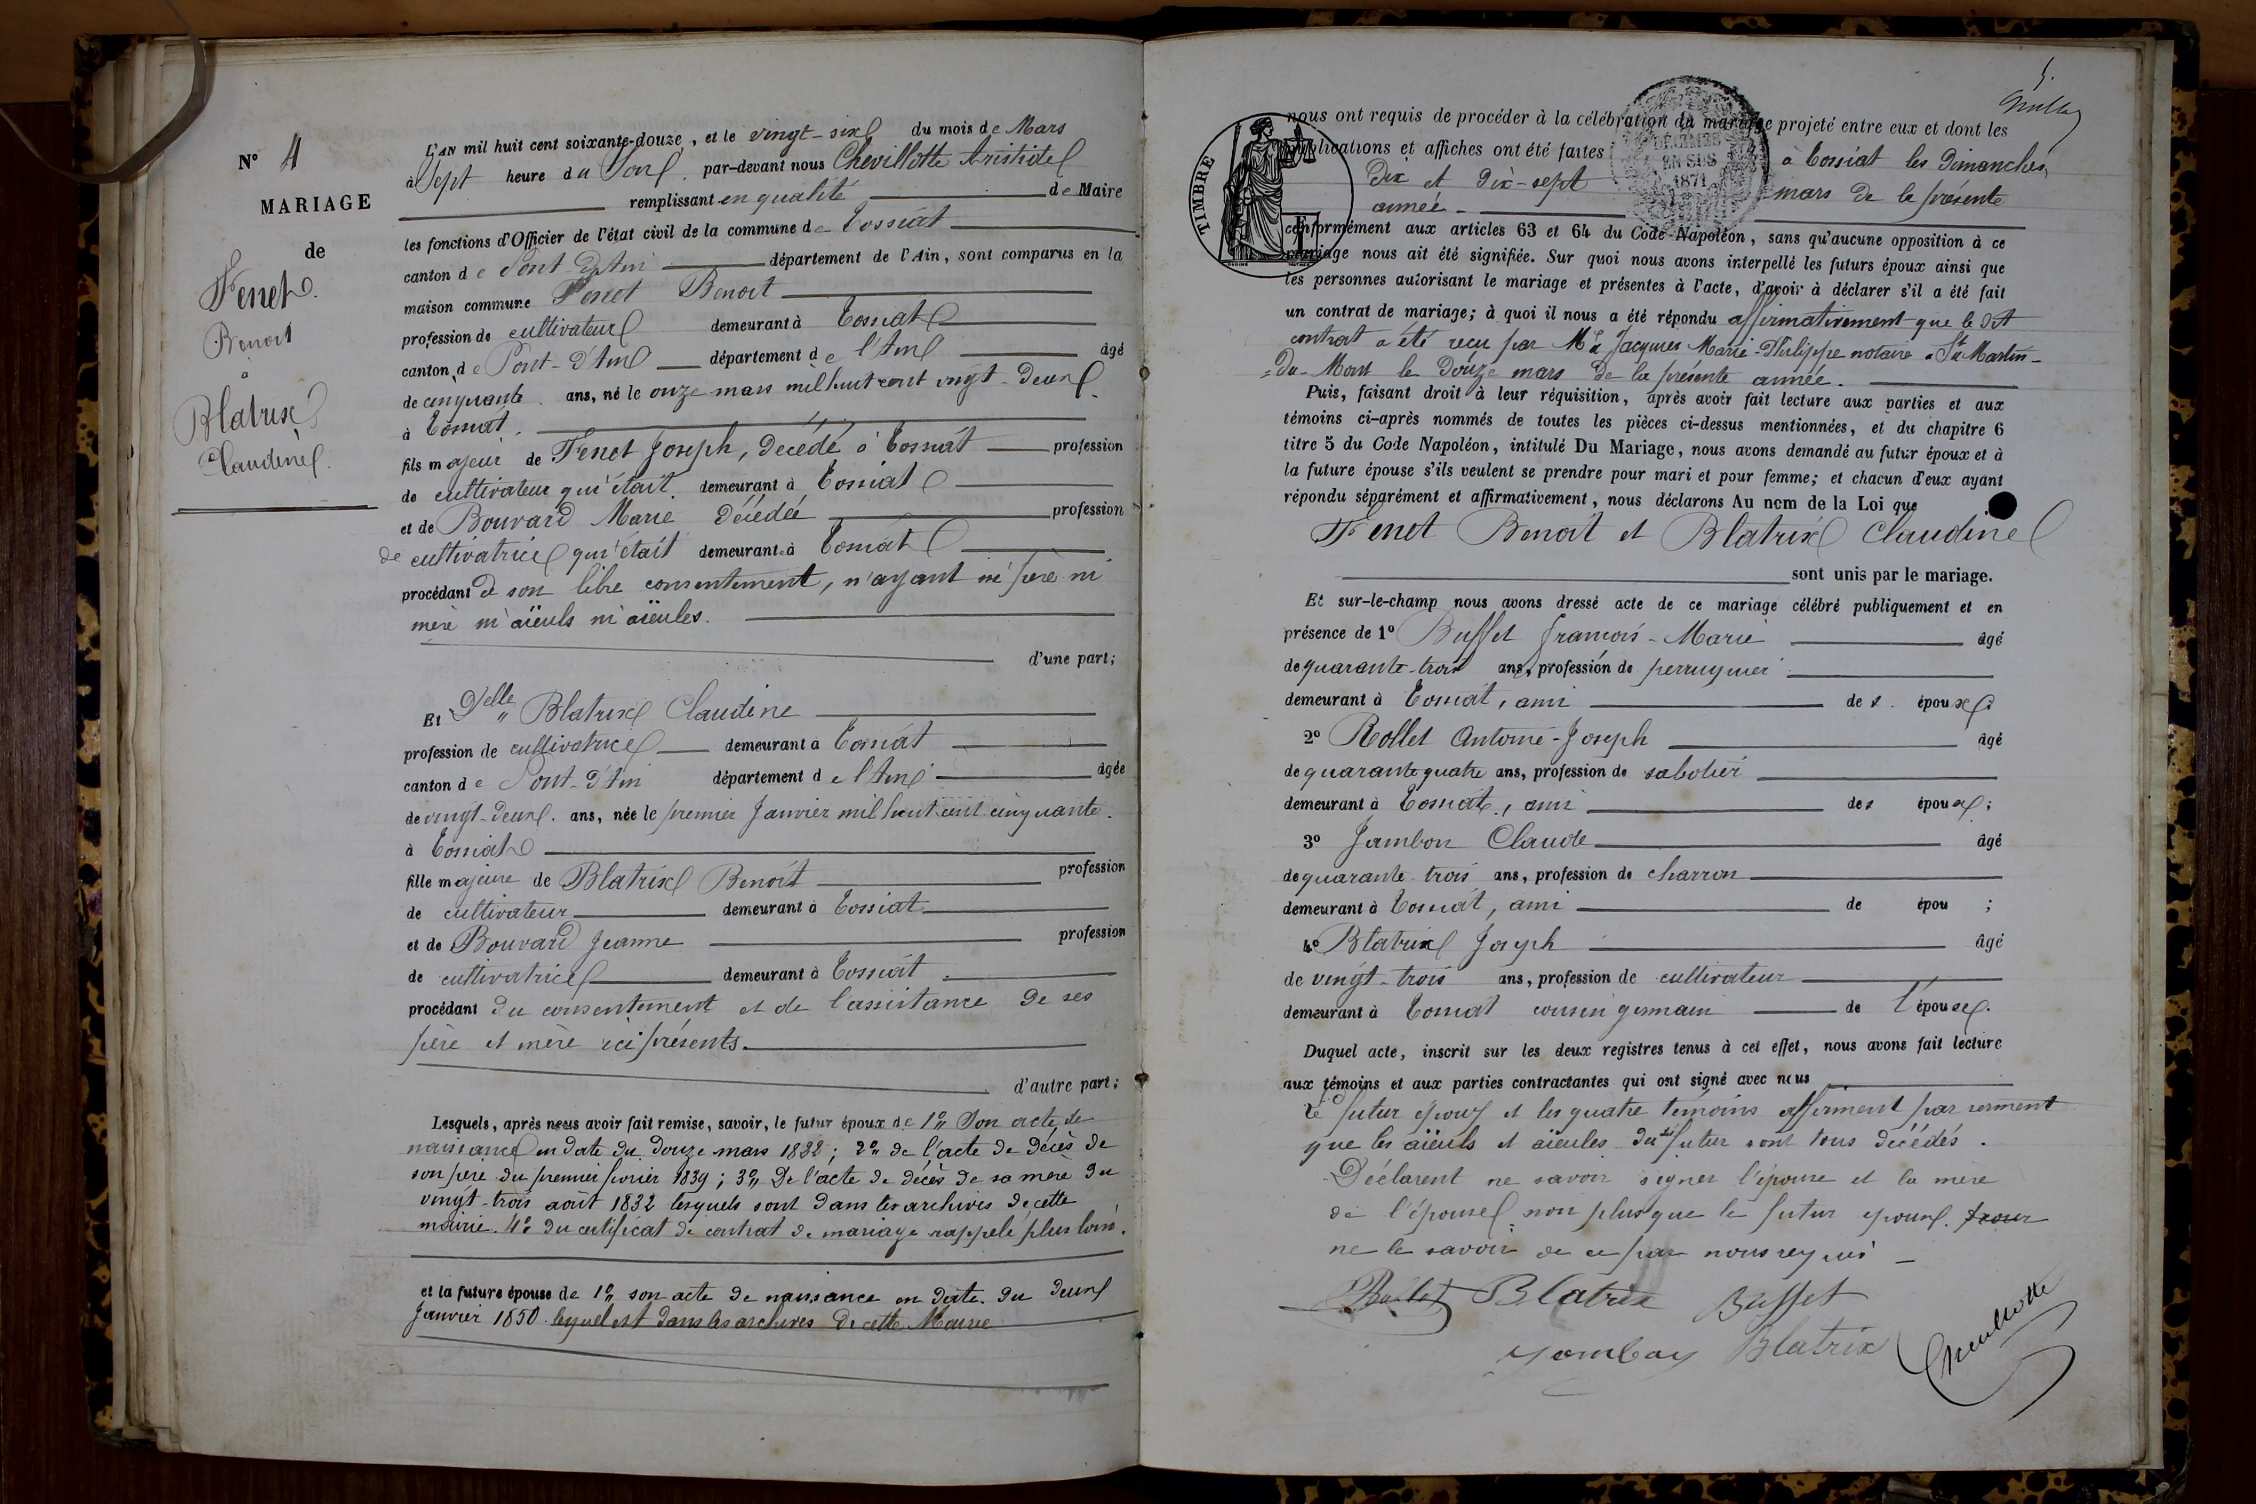 N° 4
MARIAGE
de
Fenet
Benoit
à
Blatrix
Claudine
L'AN mil huit cent soixante-douze, et le vingt-six du mois de Mars
à Sept heure du Soir par-devant nous Chevillotte Aristide
remplissant en qualité de Maire
les fonctions d'Officier de l'état civil de la commune de Tossiat
canton de Pont-d'Ain département de l'Ain, sont comparus en la
maison commune Fenet Benoit
profession de cultivateur demeurant à Tossiat
canton de Pont-d'Ain département de l'Ain âgé
de cinquante ans, né le onze mars mil huit cent vingt-deux
à Tossiat.
fils majeur de Fenet Joseph, décédé à Tossiat profession
de cultivateur qu'était demeurant à Tossiat
et de Bouvard Marie décédée profession
de cultivatrice qu'était demeurant à Tossiat
procédant de son libre consentement, n'ayant ni père ni
mère ni aïeuls ni aïeules.
d'une part;
Et Delle Blatrix Claudine
profession de cultivatrice demeurant à Tossiat
canton de Pont-d'Ain département de l'Ain âgée
de vingt-deux ans, née le premier Janvier mil huit cent cinquante.
à Tossiat
fille majeure de Blatrix Benoit profession
de cultivateur demeurant à Tossiat
et de Bouvard Jeanne profession
de cultivatrice demeurant à Tossiat
procédant du consentement et de l'assistance de ses
père et mère ici présents.
d'autre part;
Lesquels, après nous avoir fait remise, savoir, le futur époux de 1° Son acte de
naissance en date du douze mars 1822; 2° de l'acte de décès de
son père du premier février 1839; 3° De l'acte de décès de sa mère du
vingt-trois août 1832 lesquels sont dans les archives de cette
mairie. 4° du certificat de contrat de mariage rappelé plus loin.
et la future épouse de 1° son acte de naissance en date du deux
Janvier 1850 lequel est dans les archives de cette Mairie
5.
nous ont requis de procéder à la célébration du mariage projeté entre eux et dont les
publications et affiches ont été faites à Tossiat les Dimanches
dix et dix-sept mars de la présente
année
TIMBRE
1871
conformément aux articles 63 et 64 du Code Napoléon, sans qu'aucune opposition à ce
mariage nous ait été signifiée. Sur quoi nous avons interpellé les futurs époux ainsi que
les personnes autorisant le mariage et présentes à l'acte, d'avoir à déclarer s'il a été fait
un contrat de mariage; à quoi il nous a été répondu affirmativement que le dit
contrat a été reçu par Me Jacques Marie-Philippe notaire à St Martin-
=du-Mont le douze mars de la présente année.
Puis, faisant droit à leur réquisition, après avoir fait lecture aux parties et aux
témoins ci-après nommés de toutes les pièces ci-dessus mentionnées, et du chapitre 6
titre 5 du Code Napoléon, intitulé Du Mariage, nous avons demandé au futur époux et à
la future épouse s'ils veulent se prendre pour mari et pour femme; et chacun d'eux ayant
répondu séparément et affirmativement, nous déclarons Au nom de la Loi que
Fenet Benoit et Blatrix Claudine
sont unis par le mariage.
Et sur-le-champ nous avons dressé acte de ce mariage célébré publiquement et en
présence de 1° Buffet François-Marie âgé
de quarante-trois ans, profession de perruquier
demeurant à Tossiat, ami des époux;
2° Rollet Antoine-Joseph âgé
de quarante quatre ans, profession de sabotier
demeurant à Tossiat, ami des époux;
3° Jambon Claude âgé
de quarante trois ans, profession de charron
demeurant à Tossiat, ami de épou ;
4° Blatrix Joseph âgé
de vingt-trois ans, profession de cultivateur
demeurant à Tossiat cousin germain de l'épouse.
Duquel acte, inscrit sur les deux registres tenus à cet effet, nous avons fait lecture
aux témoins et aux parties contractantes qui ont signé avec nous
Le futur époux et les quatre témoins affirment par serment
que les aïeuls et aïeules du dit futur sont tous décédés.
Déclarent ne savoir signer l'épouse et la mère
de l'épouse non plus que le futur époux. pour
ne le savoir de ce par nous requis
Rollet Blatrix Buffet
Jambon Blatrix Chevillotte